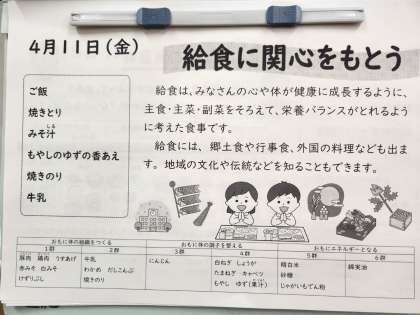 4月11日(金)
給食に関心をもとう
ご飯
焼きとり
みそ汁
もやしのゆずの香あえ
焼きのり
牛乳
給食は、みなさんの心や体が健康に成長するように、
主食・主菜・副菜をそろえて、栄養バランスがとれるよう
に考えた食事です。
給食には、郷土食や行事食、外国の料理なども出ま
す。地域の文化や伝統などを知ることもできます。
おもに体の組織をつくる
おもに体の調子を整える
おもにエネルギーとなる
1群
2群
3群
4群
5群
6群
豚肉 鶏肉 うすあげ
赤みそ 白みそ
けずりぶし
牛乳
わかめ だしこんぶ
焼きのり
にんじん
白ねぎ しょうが
たまねぎ キャベツ
もやし ゆず(果汁)
精白米
砂糖
じゃがいもでん粉
綿実油